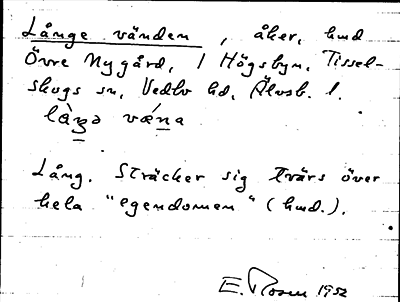 Långe vänden, åker, hmd
Övre Nygård, 1 Högsbyn, Tissel-
skogs sn, Vedbo hd, Älvsb. l.
Lång. Sträcker sig tvärs över
hela "egendomen" (hmd.).
E. Rosen 1952